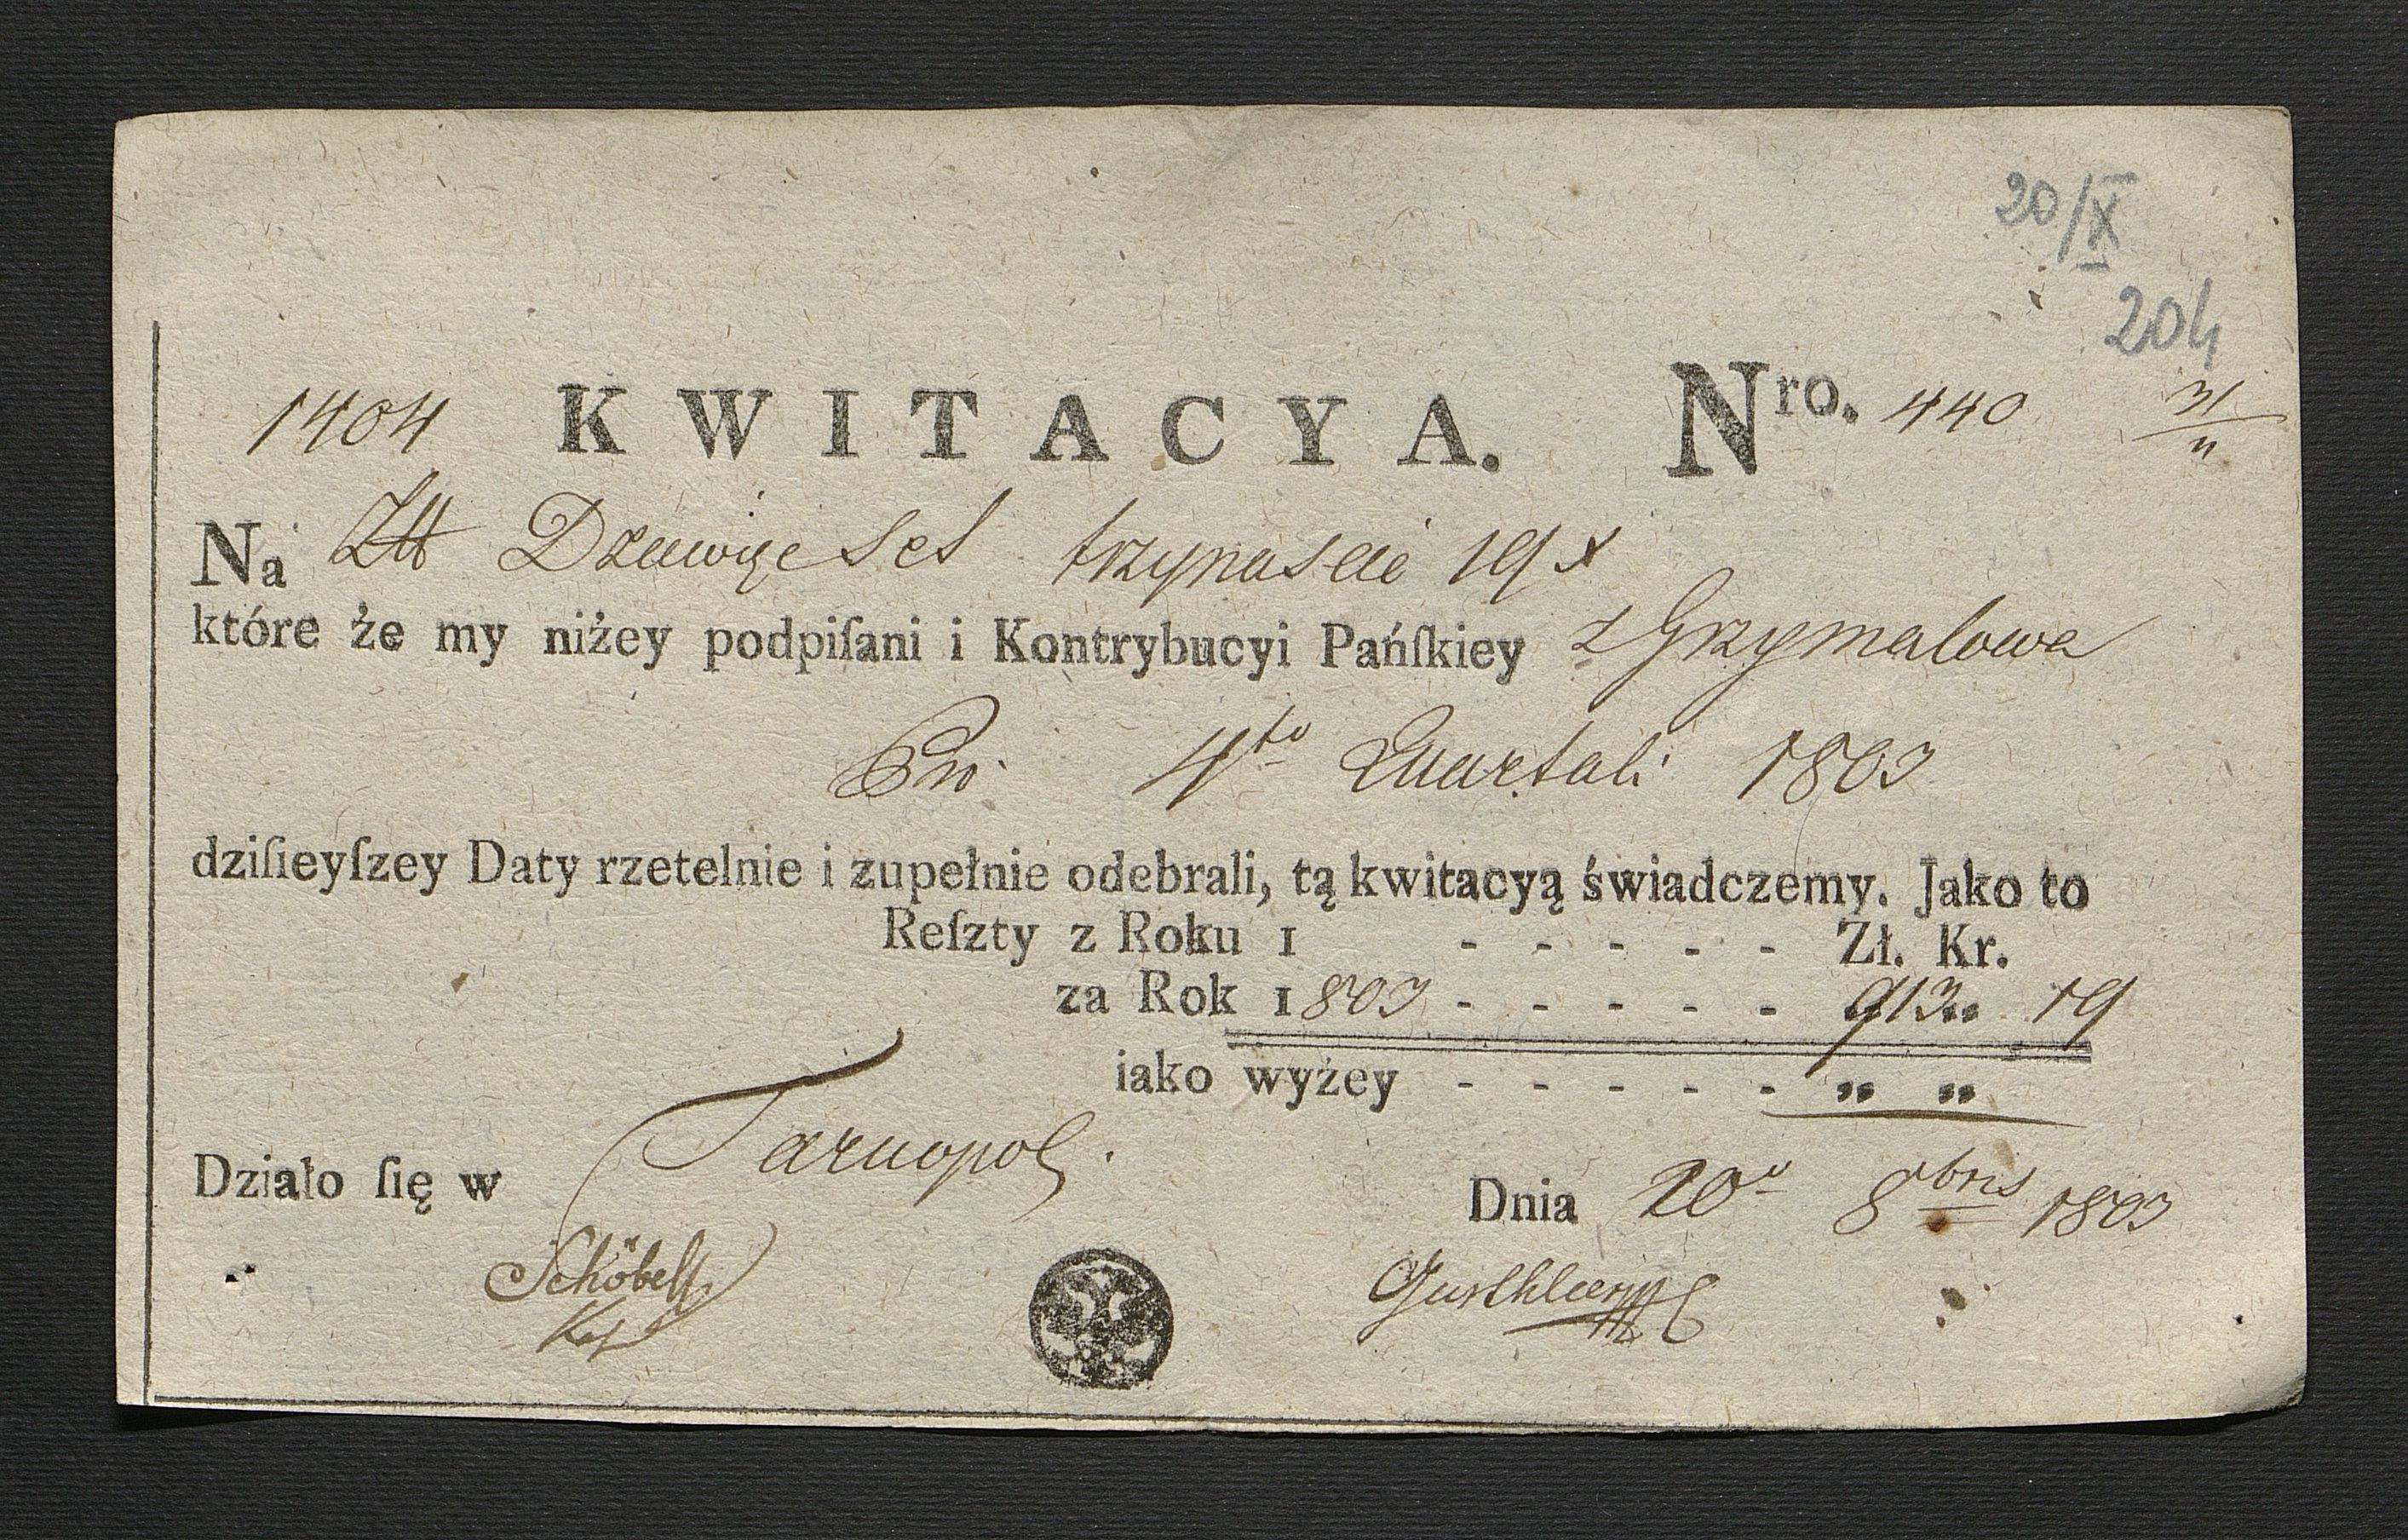 20/X
204
1404 KWITACYA. Nro. 440
Na Złł Dziewięc Set trzynascie 19 x
które że my niżey podpiſani i Kontrybucyi Pańſkiey z Grzymalowa
Pro 4to Quartali 1803
dziſieyſzey Daty rzetelnie i zupełnie odebrali, tą kwitacyą świadczemy. Jako to
Reſzty z Roku 1 - - - - - Zł. Kr.
za Rok 1803 - - - - - 913 „ 19
iako wyżey - - - - - „ „
Działo ſię w Tarnopol.
Dnia 20o 8bris 1803
Schöbel